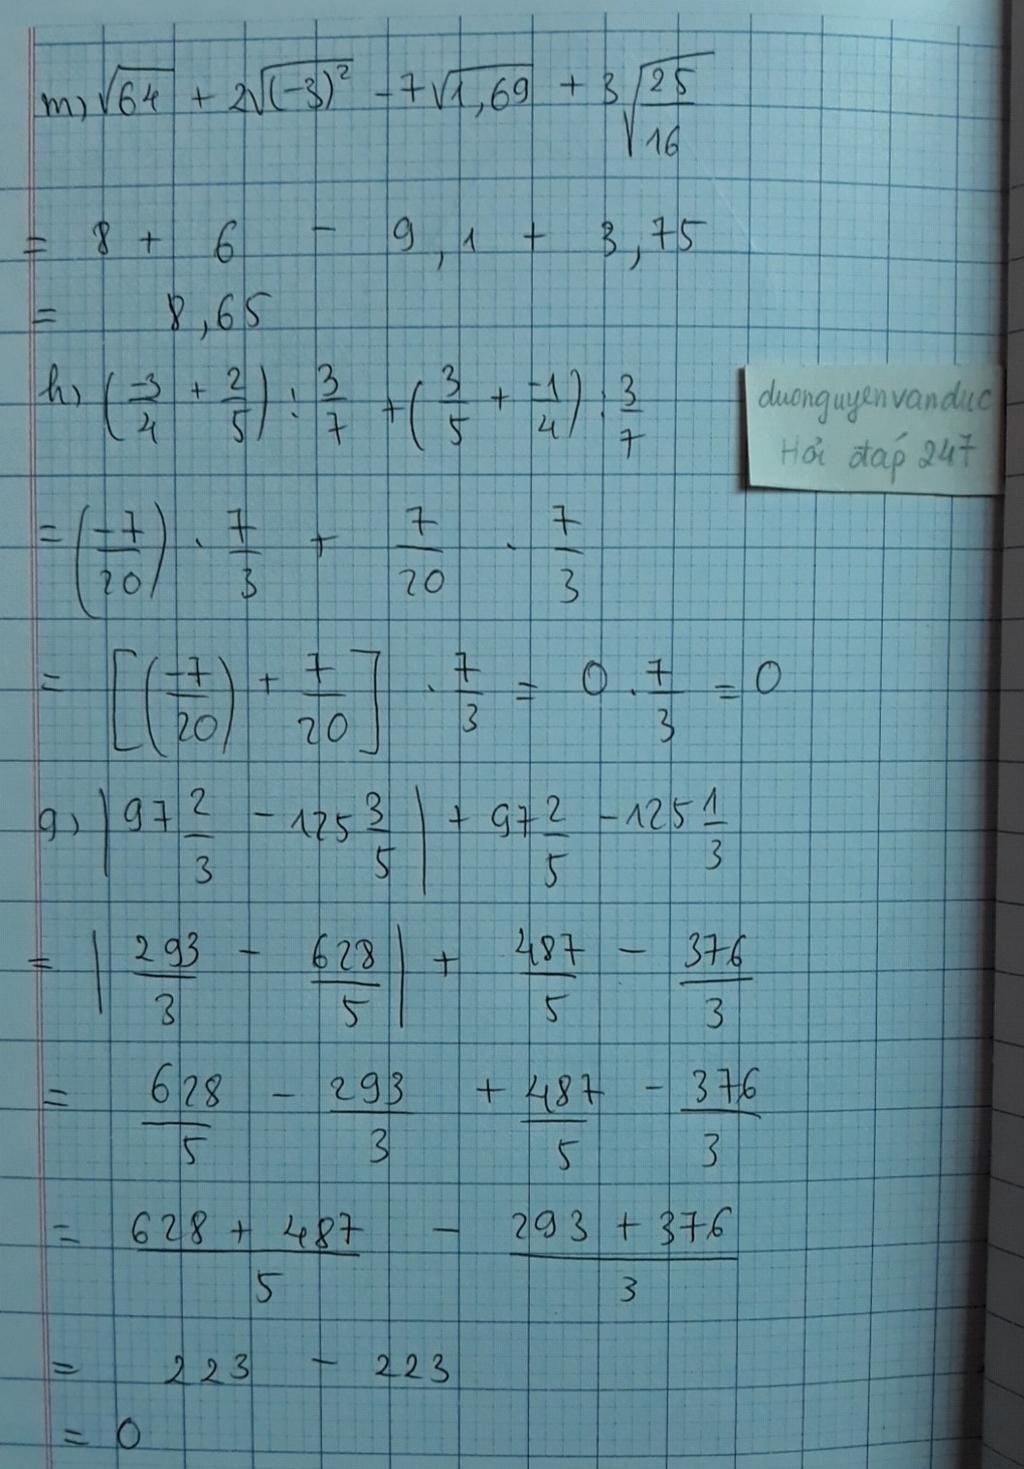 m) √64 + 2√(-3)² - 7√1,69 + 3√25/16
= 8 + 6 - 9,1 + 3,75
= 8,65
h) (-3/4 + 2/5) : 3/7 + (3/5 + -1/4) : 3/7
duonguyenvanduc
Hỏi đáp 247
= (-7/20) . 7/3 + 7/20 . 7/3
= [(-7/20) + 7/20] . 7/3 = 0 . 7/3 = 0
g) |97 2/3 - 125 3/5| + 97 2/5 - 125 1/3
= |293/3 - 628/5| + 487/5 - 376/3
= 628/5 - 293/3 + 487/5 - 376/3
= 628 + 487/5 - 293 + 376/3
= 223 - 223
= 0